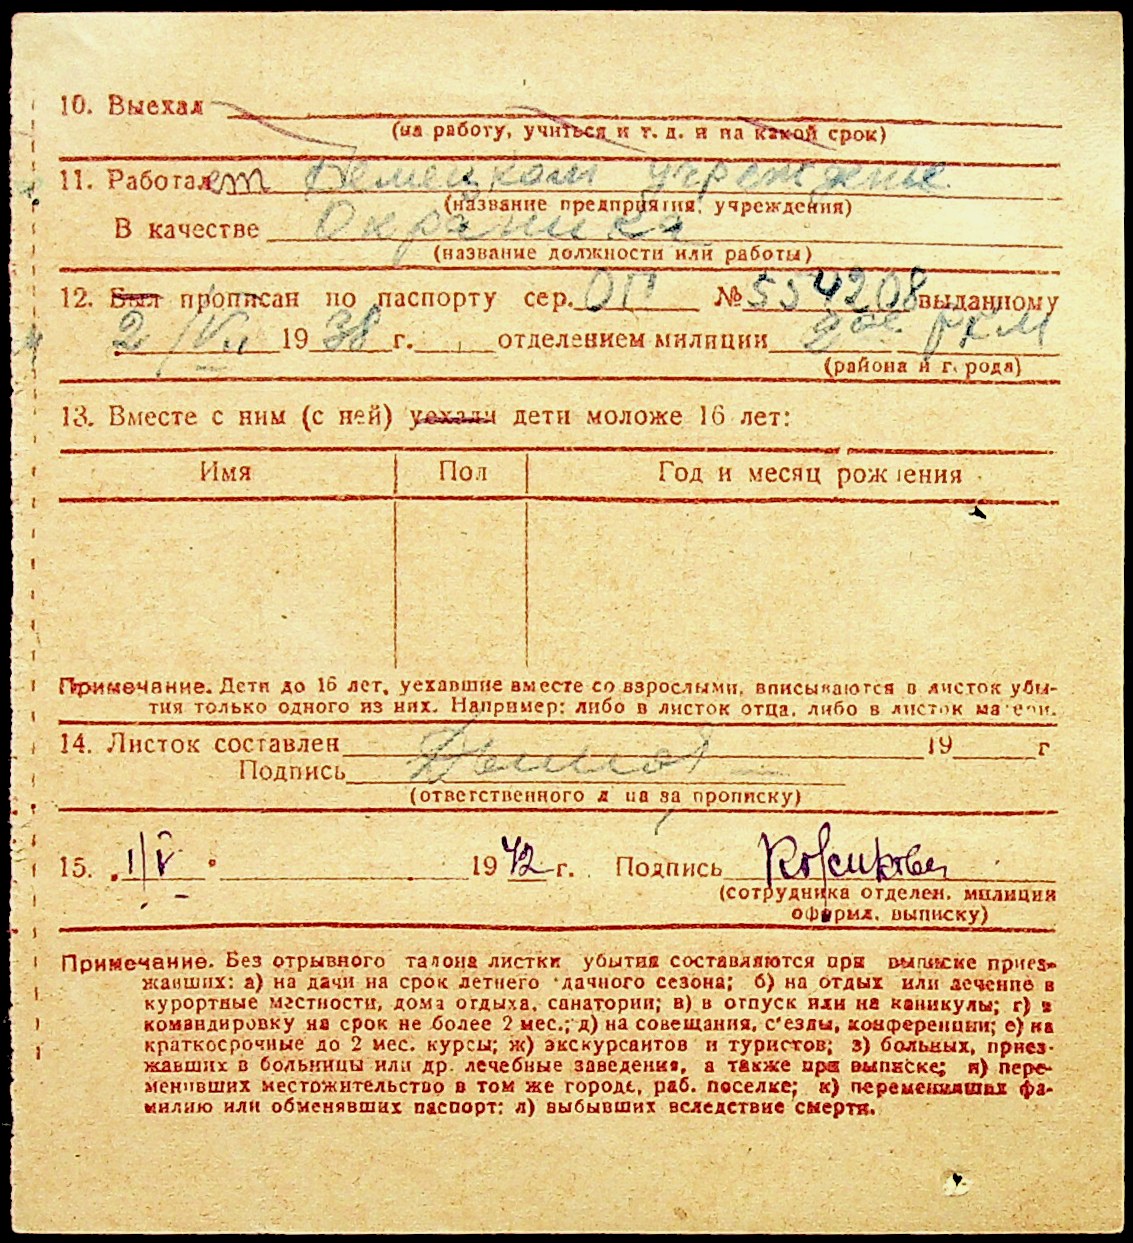 10. Выехал
(на работу, учиться и т. д. и на какой срок)
11. Работает Немецком учреждение
(название предприятия, учреждения)
В качестве Охраника
(название должности или работы)
12. Был прописан по паспорту сер. ОП № 554208 выданному
2/VII 1938 г. отделением милиции РКМ
(района и города)
13. Вместе с ним (с ней) уехали дети моложе 16 лет:
Имя Пол Год и месяц рождения
Примечание. Дети до 16 лет, уехавшие вместе со взрослыми, вписываются в листок убы-
тия только одного из них. Например: либо в листок отца, либо в листок матери.
14. Листок составлен 19 г
Подпись
(ответственного лица за прописку)
15. 1/V 1942 г. Подпись
(сотрудника отделен. милиция
оформл. выписку)
Примечание. Без отрывного талона листки убытия составляются при выписке приез-
жавших: а) на дачи на срок летнего дачного сезона; б) на отдых или лечение в
курортные местности, дома отдыха, санатории; в) в отпуск или на каникулы; г) в
командировку на срок не более 2 мес.; д) на совещания, с'езды, конференции; е) на
краткосрочные до 2 мес. курсы; ж) экскурсантов и туристов; з) больных, приез-
жавших в больницы или др. лечебные заведения, а также при выписке; и) пере-
менивших местожительство в том же городе, раб. поселке; к) переменивших фа-
милию или обменявших паспорт; л) выбывших вследствие смерти.